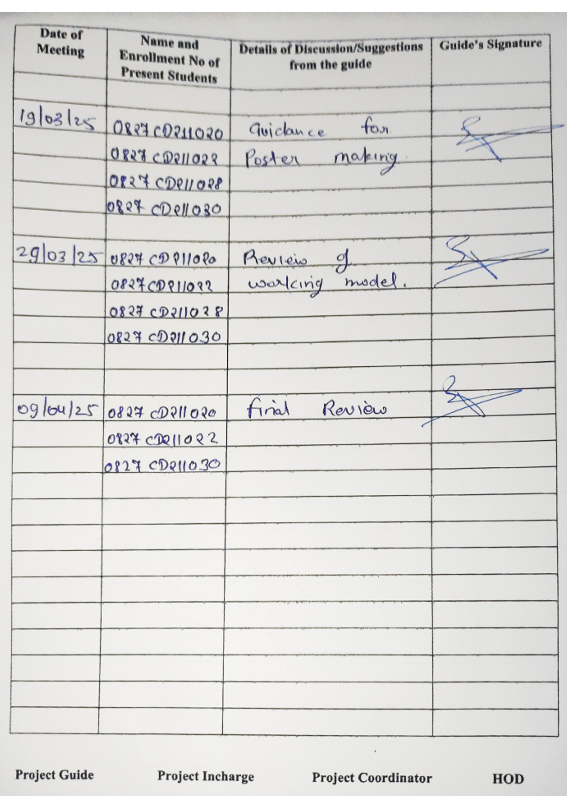 Date of Meeting Name and Enrollment No of Present Students Details of Discussion/Suggestions from the guide Guide's Signature
19/03/25 0827 CD211020 Guidance for
0827 CD211022 Poster making.
0827 CD211028
0827 CD211030
29/03/25 0827 CD211020 Review of
0827 CD211022 working model.
0827 CD211028
0827 CD211030
09/04/25 0827 CD211020 Final Review
0827 CD211022
0827 CD211030
Project Guide Project Incharge Project Coordinator HOD